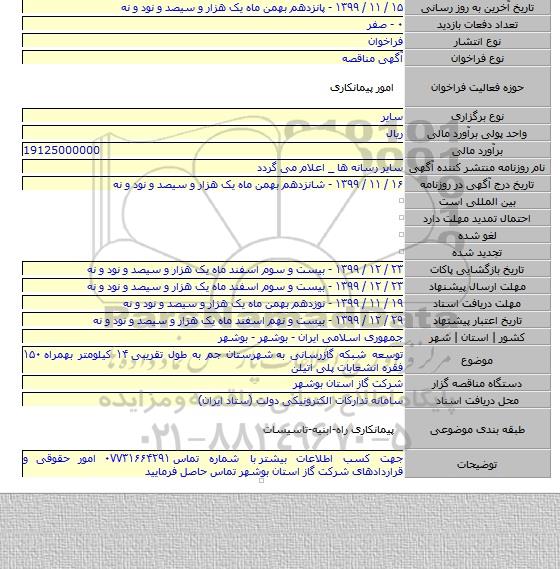 تاریخ آخرین به روز رسانی ۱۵ / ۱۱ / ۱۳۹۹ - پانزدهم بهمن ماه یک هزار و سیصد و نود و نه
تعداد دفعات بازدید ۰ - صفر
نوع انتشار فراخوان
نوع فراخوان آگهی مناقصه
حوزه فعالیت فراخوان امور پیمانکاری
نوع برگزاری سایر
واحد پولی برآورد مالی ریال
برآورد مالی 19125000000
نام روزنامه منتشر کننده آگهی سایر رسانه ها _ اعلام می گردد
تاریخ درج آگهی در روزنامه ۱۶ / ۱۱ / ۱۳۹۹ - شانزدهم بهمن ماه یک هزار و سیصد و نود و نه
بین المللی است
احتمال تمدید مهلت دارد
لغو شده
تجدید شده
تاریخ بازگشایی پاکات ۲۳ / ۱۲ / ۱۳۹۹ - بیست و سوم اسفند ماه یک هزار و سیصد و نود و نه
مهلت ارسال پیشنهاد ۲۳ / ۱۲ / ۱۳۹۹ - بیست و سوم اسفند ماه یک هزار و سیصد و نود و نه
مهلت دریافت اسناد ۱۹ / ۱۱ / ۱۳۹۹ - نوزدهم بهمن ماه یک هزار و سیصد و نود و نه
تاریخ اعتبار پیشنهاد ۲۹ / ۱۲ / ۱۳۹۹ - بیست و نهم اسفند ماه یک هزار و سیصد و نود و نه
کشور | استان | شهر جمهوری اسلامی ایران - بوشهر - بوشهر
موضوع توسعه شبکه گازرسانی به شهرستان جم به طول تقریبی ۱۴ کیلومتر بهمراه ۱۵۰
فقره انشعابات پلی اتیلن
دستگاه مناقصه گزار شرکت گاز استان بوشهر
محل دریافت اسناد سامانه تدارکات الکترونیکی دولت (ستاد ایران)
طبقه بندی موضوعی پیمانکاری راه-ابنیه-تاسیسات
توضیحات جهت کسب اطلاعات بیشتر با شماره تماس ۰۷۷۳۱۶۶۴۲۹۱ امور حقوقی و
قراردادهای شرکت گاز استان بوشهر تماس حاصل فرمایید
۰۲۱-۸۸۳۴۹۶۷۰-۵